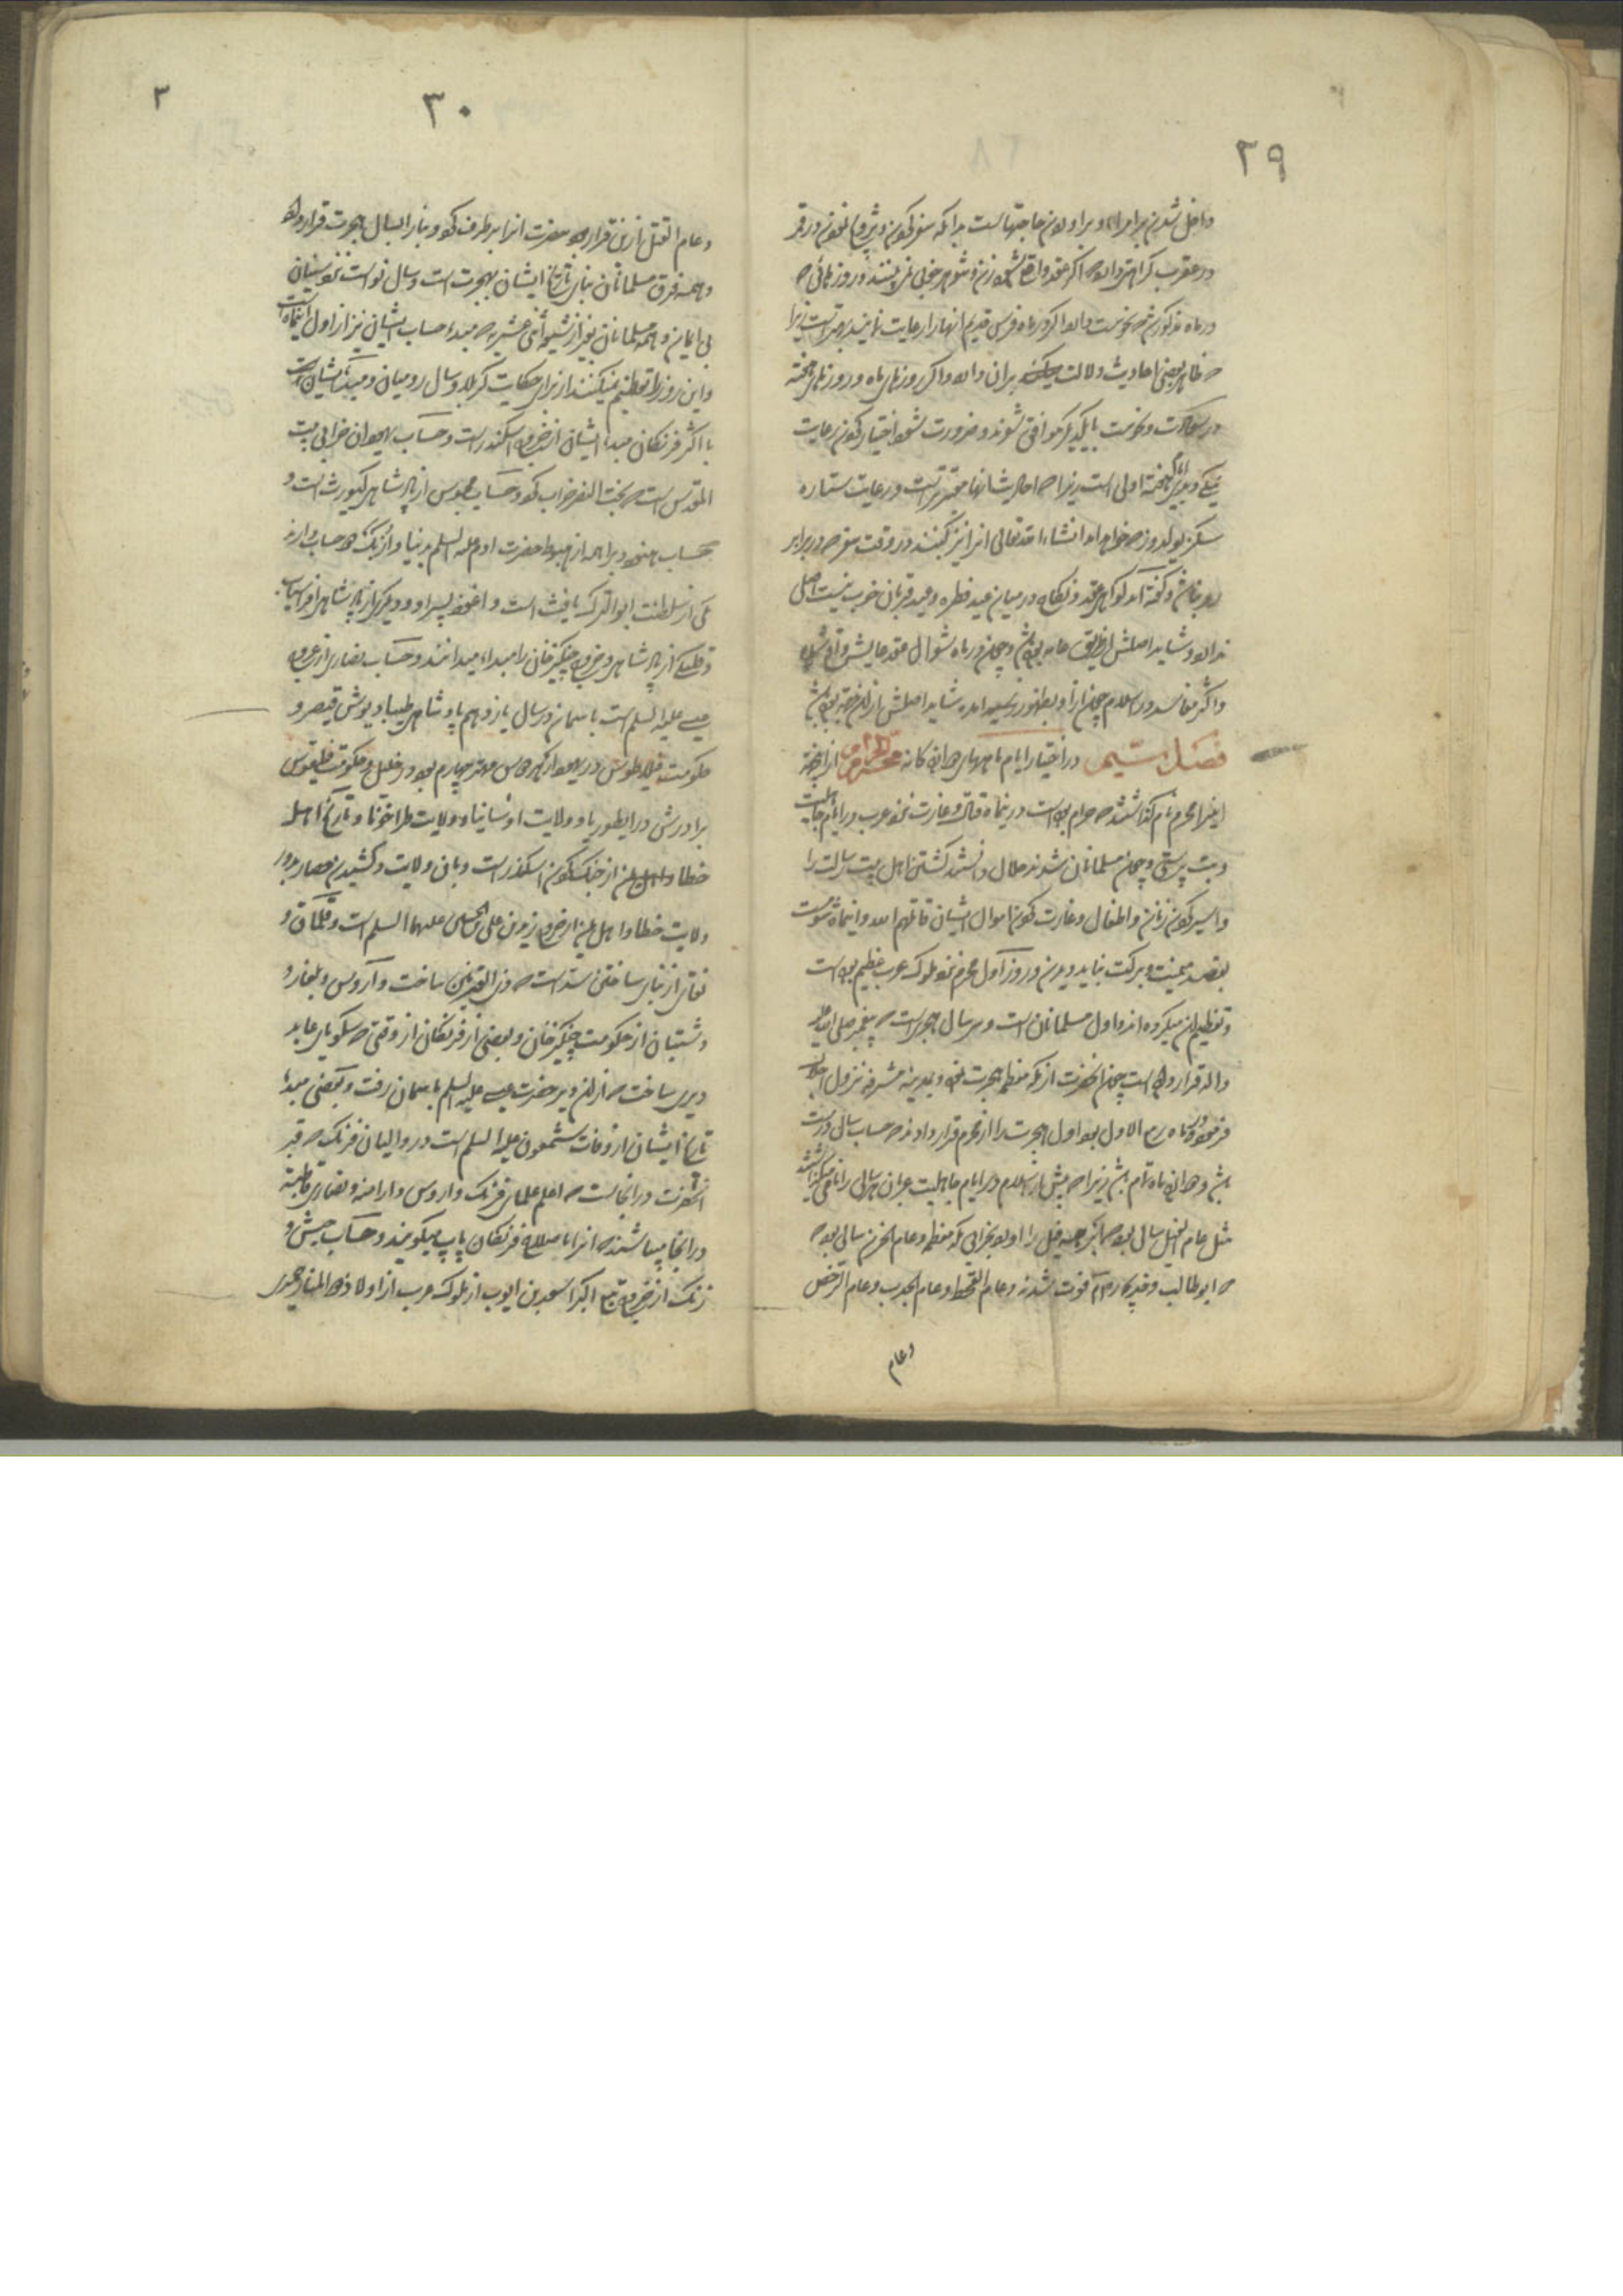 ٢٩
داخل شدن بر امراء و براوردن حاجتهاست بدانکه سفر کردن و تزویج نمودن در قمر
در عقرب کراهت دارد اگر عقد واقع شود زن و شوهر خوبی نمی بینند و روزهائی که
در ماه مذکور شد نحوست دارد اگر در ماه فرس قدیم انها را رعایت نمایند بهتر است زیرا
که ظاهر بعضی احادیث دلالت بران دارد و اگر روزهای ماه و روزهای هفته
در سعادت و نحوست با یکدیگر موافق نشوند و ضرورت شود اختیار کردن رعایت
ایام هفته اولی است زیرا که احادیث انها معتبرتر است و رعایت ستاره
سکز یولدوز که خواهد امد انشاء الله تعالی انرا نیز بکنند در وقت سفر که در برابر
رو نباشد و گفته اند که عقد و نکاح در میان عید فطر و عید قربان خوب نیست اصلی
ندارد و شاید اصلش از طریق عامه بوده باشد و چون در ماه شوال عقد عایشه واقع شد
و اکثر مفاسد در اسلام از او بظهور رسید شاید اصلش ازان جهة بوده باشد
فصل در اختیار ایام ماههای دوازده کانه محرم الحرام از انجهة
اینرا محرم نام گذاشتند که حرام بوده است در اینماه قتال و غارت نزد عرب در ایام جاهلیت
و بت پرستی و چون مسلمانان شدند حلال دانستند کشتن اهل بیت رسالت را
و اسیر کردن زنان و اطفال و غارت کردن اموال ایشان قاتلهم الله و اینماه شومست
بقصد میمنت و برکت نباید دیدن و روز اول محرم نزد ملوک عرب عظیم بوده است
و تعظیم ان میکرده اند و اول مسلمانان است و سر سال هجریست که پیغمبر صلی الله علیه
و اله قرار داده است چون انحضرت از مکه معظمه هجرت نموده و بمدینه مشرفه نزول اجلال
فرمود در ماه ربیع الاول بود اول هجرت را از محرم قرار دادند که حساب سالی درست
باشد و دوازده ماه تمام باشد زیرا که پیش از اسلام در ایام جاهلیت عربان هر سالی را نامی میگذاشتند
مثل عام الفیل سالی بود که ابرهه فیل را اورد بخرابی مکه معظمه و عام الحزن سالی بود
که ابو طالب و خدیجه در ان فوت شدند و عام القحط و عام الجدب و عام الرخص
و عام
٣٠
٣
و عام القتل ازین قرار بود حضرت انرا بر طرف کرد و بنا را بسال هجرت قرار داد
و همه فرق مسلمانان بنای تاریخ ایشان بهجرت است و سال نو است نزد سنیان
بی ایمان و همه مسلمانان بغیر از شیعه اثنی عشریه که مبدء حساب ایشان نیز از اول اینماه است
و این روز را تعظیم نمیکنند از برای حکایت کربلا و سال رومیان و مبداء ایشان
با اکثر فرنگان مبداء ایشان از خروج اسکندر است و حساب یهودان خرابی بیت
المقدس است که بخت النصر خراب کرد و حساب مجوس از پادشاهی کیومرث است و
حساب هنود و براهمه از هبوط حضرت ادم علیه السلم بدنیا و ازبک که حساب دارند
از سلطنت ابو الترک یافث است و اغوز پسر او و دیگر از پادشاهی افراسیاب
از پادشاهی و خروج چنگیز خان را مبداء میدانند و حساب نصاری از عروج
عیسی علیه السلم است باسمان در سال یازدهم پادشاهی طیباریوش قیصر و
حکومت فیلاطوش در یهود که هرودس مهتر چهارم بود در جلیل و حکومت فیلیفوس
برادرش در ایطوریا و ولایت و ولایت طراخونا و تاریخ اهل
خطا از جنک کردن اسکندر است وبان ولایت و کشیدن حصار بدور
ولایت خطا و اهل یمن از خروج زید بن علی بن الحسین علیهما السلم است و قلماق و
نغای از بنای ساختن سد است که ذو القرنین ساخت و اروس و بلغار و
دشتیان از حکومت چنگیز خان و بعضی از فرنگان از وقتی که سکوبای عابد
دیری ساخت که ازان دیر حضرت عیسی علیه السلم باسمان رفت و بعضی مبداء
تاریخ ایشان از وفات شمعون علیه السلم است در و الیمان فرنک که قبر
انحضرت در انجاست که اعلم علمای فرنک و اروس و ارامنه و نصاری قاطبة
در انجا میباشند که انرا باصطلاح فرنگان پاپ میگویند و حساب حبش و
زنک از خروج تبع اکبر اسعد بن ایوب از ملوک عرب از اولاد ذو المنار حمیری